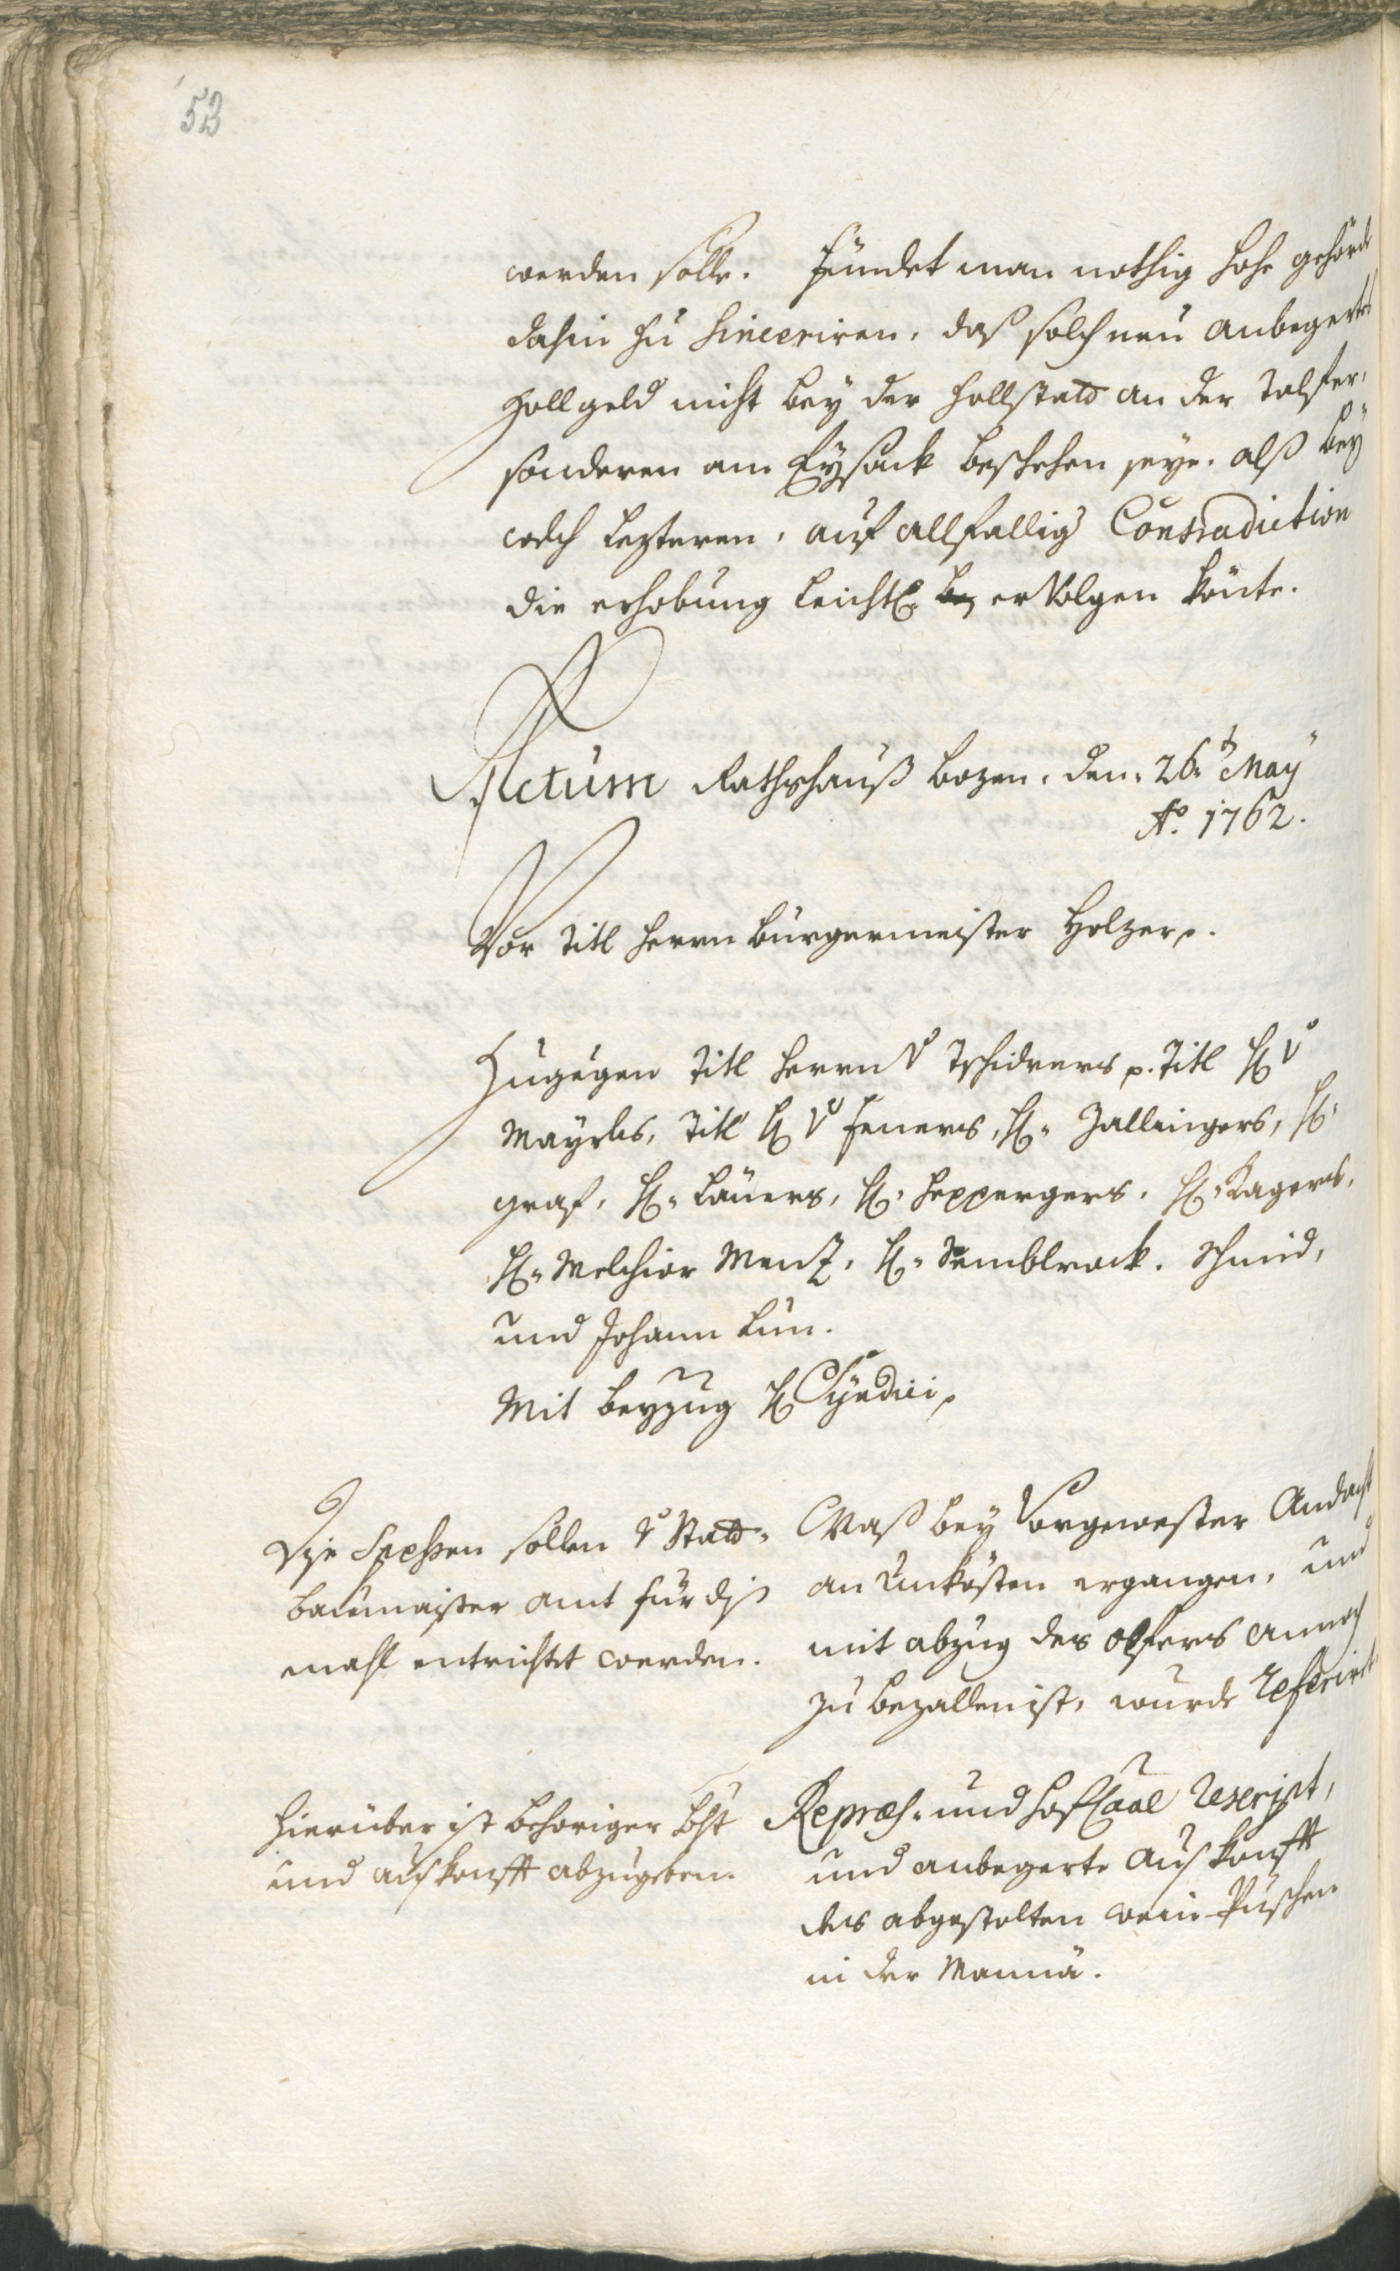 53
werden solle. Fündet man nothig hohe gehörde
dahin zu sinceriren, daß solch neu anbegertes
Zollgeld nicht bey der Zollstatt an der Talfer,
sonderen am Eysack beschehen seye, alß bey
welch lezteren, auf allfallig Contradiction
die erhobung leichtl. ervolgen könte.
Actum Rathshauß Bozen, den 26t May
Ao. 1762.
Vor Titl Herrn Bürgermeister Holzer p.
Zugegen Titl Herrn v Tschiderers p. Titl H v
Mayrls, Titl H v Feners, H. Zallingers, H.
Graf, H. Laners, H. Heppergers, H. Kagers,
H. Melchior Menz, H. Semblrock. Schmid,
und Johann Lun.
Mit beyzug H Syndici p
Die Spesen sollen v Statt-
baumaister amt für diß
mahl entrichtet werden.
Waß bey vorgewester Andacht
an Unkösten ergangen, und
mit abzug des opfers annoch
zu bezallen ist, wurde referirt.
Hierüber ist behöriger bcht
und auskonfft abzugeben.
Repræs. und Hof Caal Rescript,
und anbegerte auskonfft
des abgestolten wein Puschen
in der Mannä.